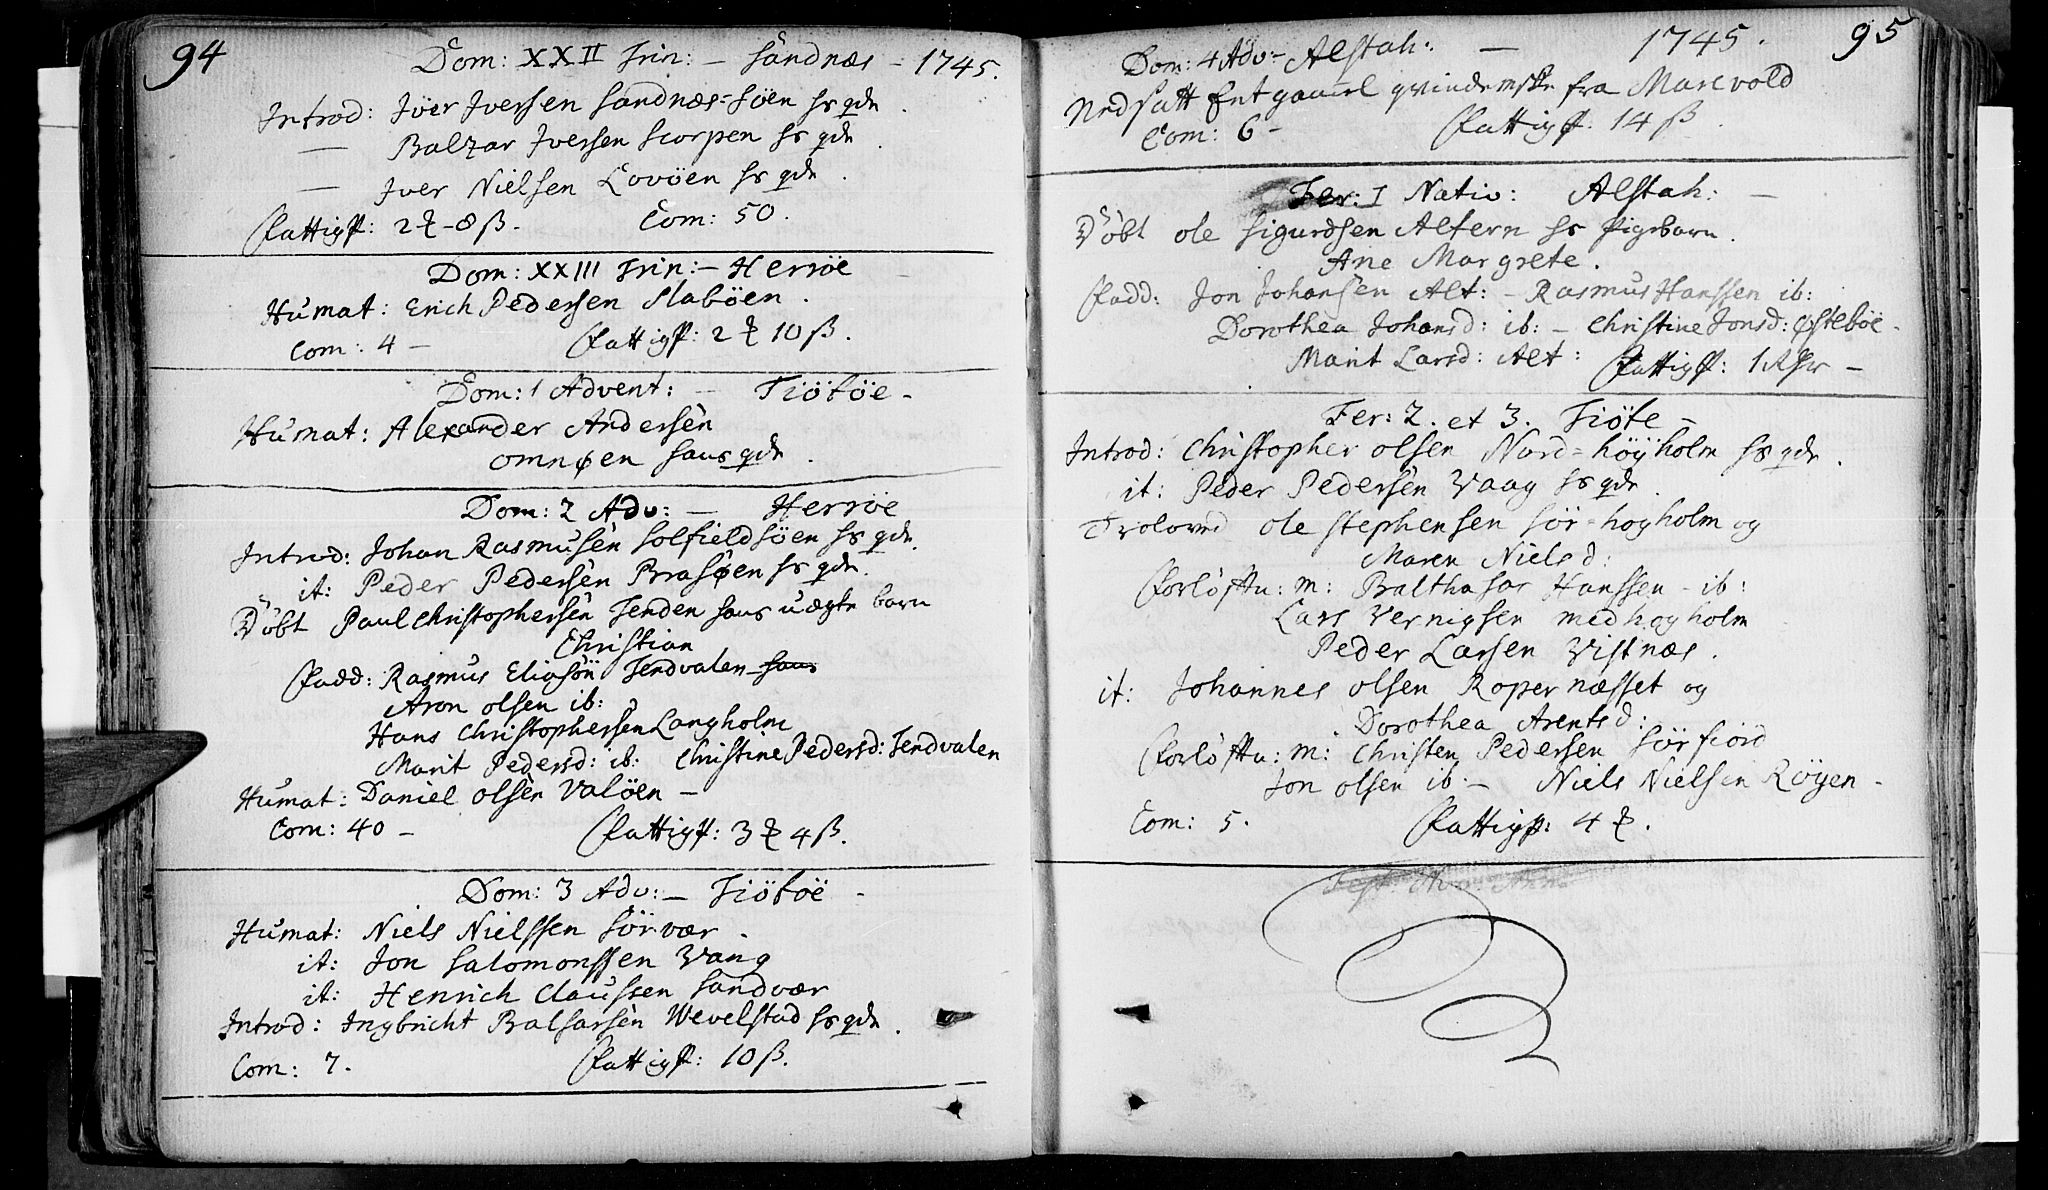 94
Dom: XXII Trin: – Sandnæs – 1745.
Introd: Iver Iversen Sandnæs-Söen hs qde.
— Balzar Iversen Scorpen hs qde.
— Iver Nielsen Lovöen hs qde.
Fattigp: 2 – 8 ß. Com: 50.
Dom: XXIII Trin: – Herröe
Humat: Erich Pedersen Slaböen.
Com: 4 – Fattigp: 2 10 ß.
Dom: 1 Advent: – Tiötöe –
Humat: Alexander Andersen
Omnøen hans qde.
Dom: 2 Adv: – Herröe
Introd: Johan Rasmusen Solfieldsöen hs qde.
it: Peder Pedersen Brasøen hs qde.
Döbt Paul Christophersen Tenden hans uægte barn
Christian
Fadd: Rasmus Eliasön Tendvalen hans
Aron Olsen ib:
Hans Christophersen Langholm
Marit Pedersd: ib: Christine Pedersd: Tendvalen
Humat: Daniel Olsen Valöen –
Com: 40 – Fattigp: 3 4 ß.
Dom: 3 Adv: – Tiötöe –
Humat: Niels Nielssen Sörvær.
it: Jon Salomonssen Vaag
it: Henrich Claussen Sandvær
Introd: Ingbricht Balsarsen Wevelstad hs qde.
Com: 7. Fattigp: 10 ß.
Dom: 4 Adv: – Alstah: – 1745. 95
Nedsatt Et gammel qvindemske fra
Com: 6 – Fattigp: 14 ß.
Fer: I Nativ: Alstah: –
Döbt Ole Sigurdsen Altern hs Pigebarn.
Ane Margrete.
Fadd: Jon Johansen Alt: – Rasmus Hanssen ib:
Dorothea Johansd: ib: – Christine Jonsd: Østeböe –
Marit Larsd: Alt: Fattigp: 1 –
Fer: 2. et 3. Tiöte –
Introd: Christopher Olsen Nord-höyholm hs qde.
it: Peder Pedersen Vaag hs qde.
Troloved Ole Stephensen Sör-hoyholm og
Maren Nielsd:
Forlöftn: M: Balthasar Hanssen – ib:
Lars Vernigsen Medhoyholm
Peder Larsen Vistnæs.
it: Johannes Olsen Ropernæsset og
Dorothea Arentsd:
Forlöftn: M: Christen Pedersen Sörfiord
Jon Olsen ib: – Niels Nielsen Röyen –
Com: 5. Fattigp: 4.